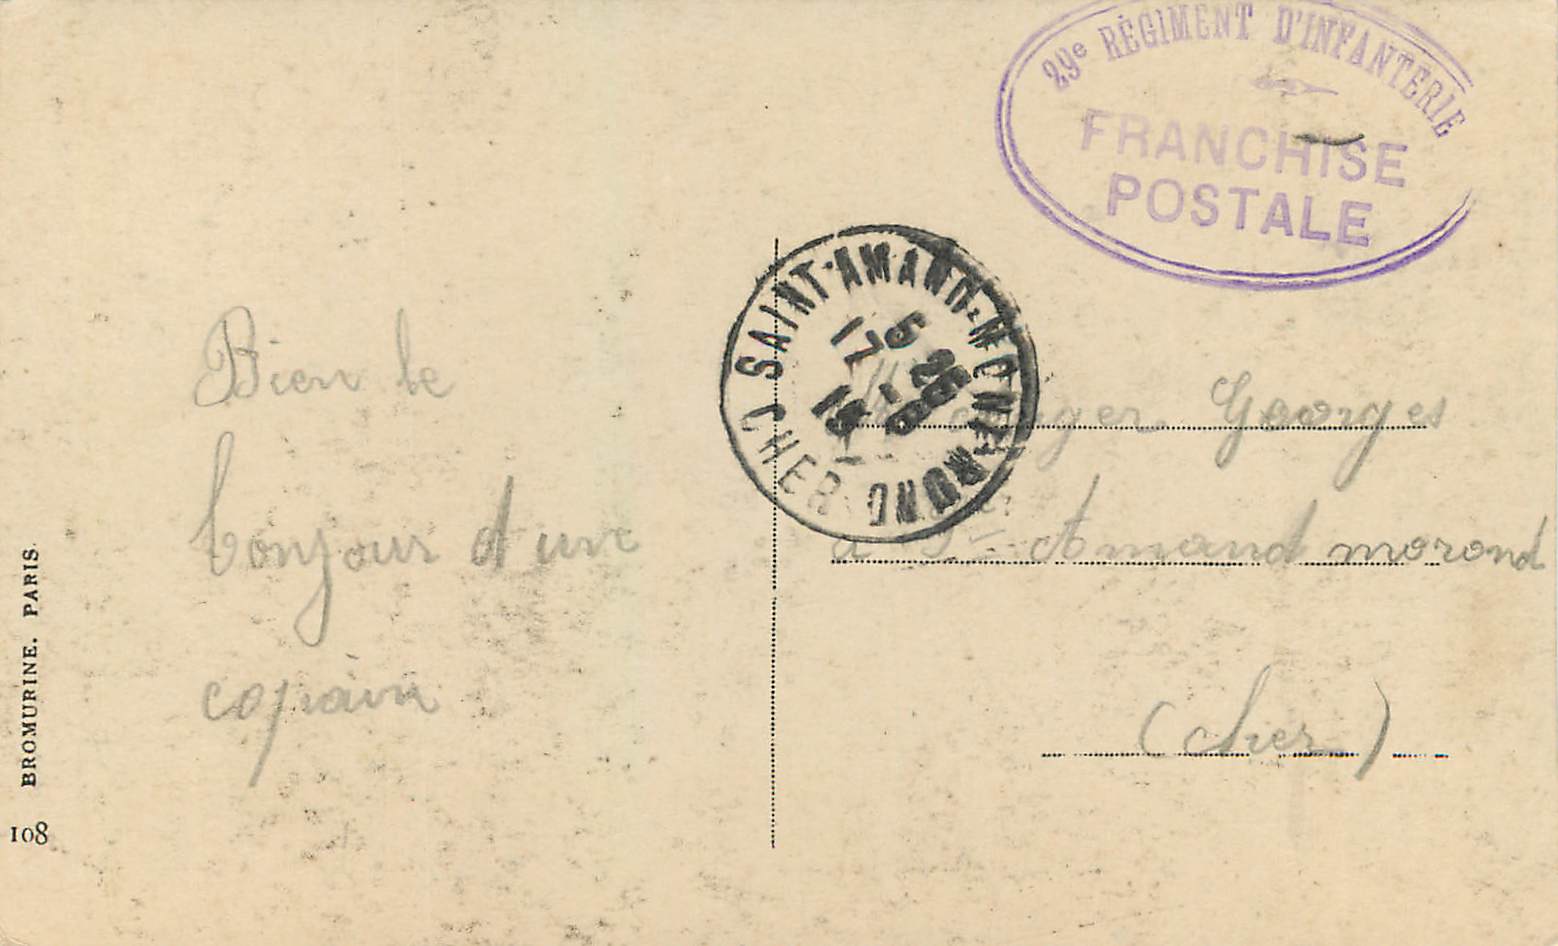 29e RÉGIMENT D'INFANTERIE
FRANCHISE
POSTALE
SAINT-AMAND-MONT-ROND
CHER
5 25
17 -8
15
Bien le
bonjour d'un
copain
Georges
à St Amand morond
(Cher)
BROMURINE. PARIS.
108